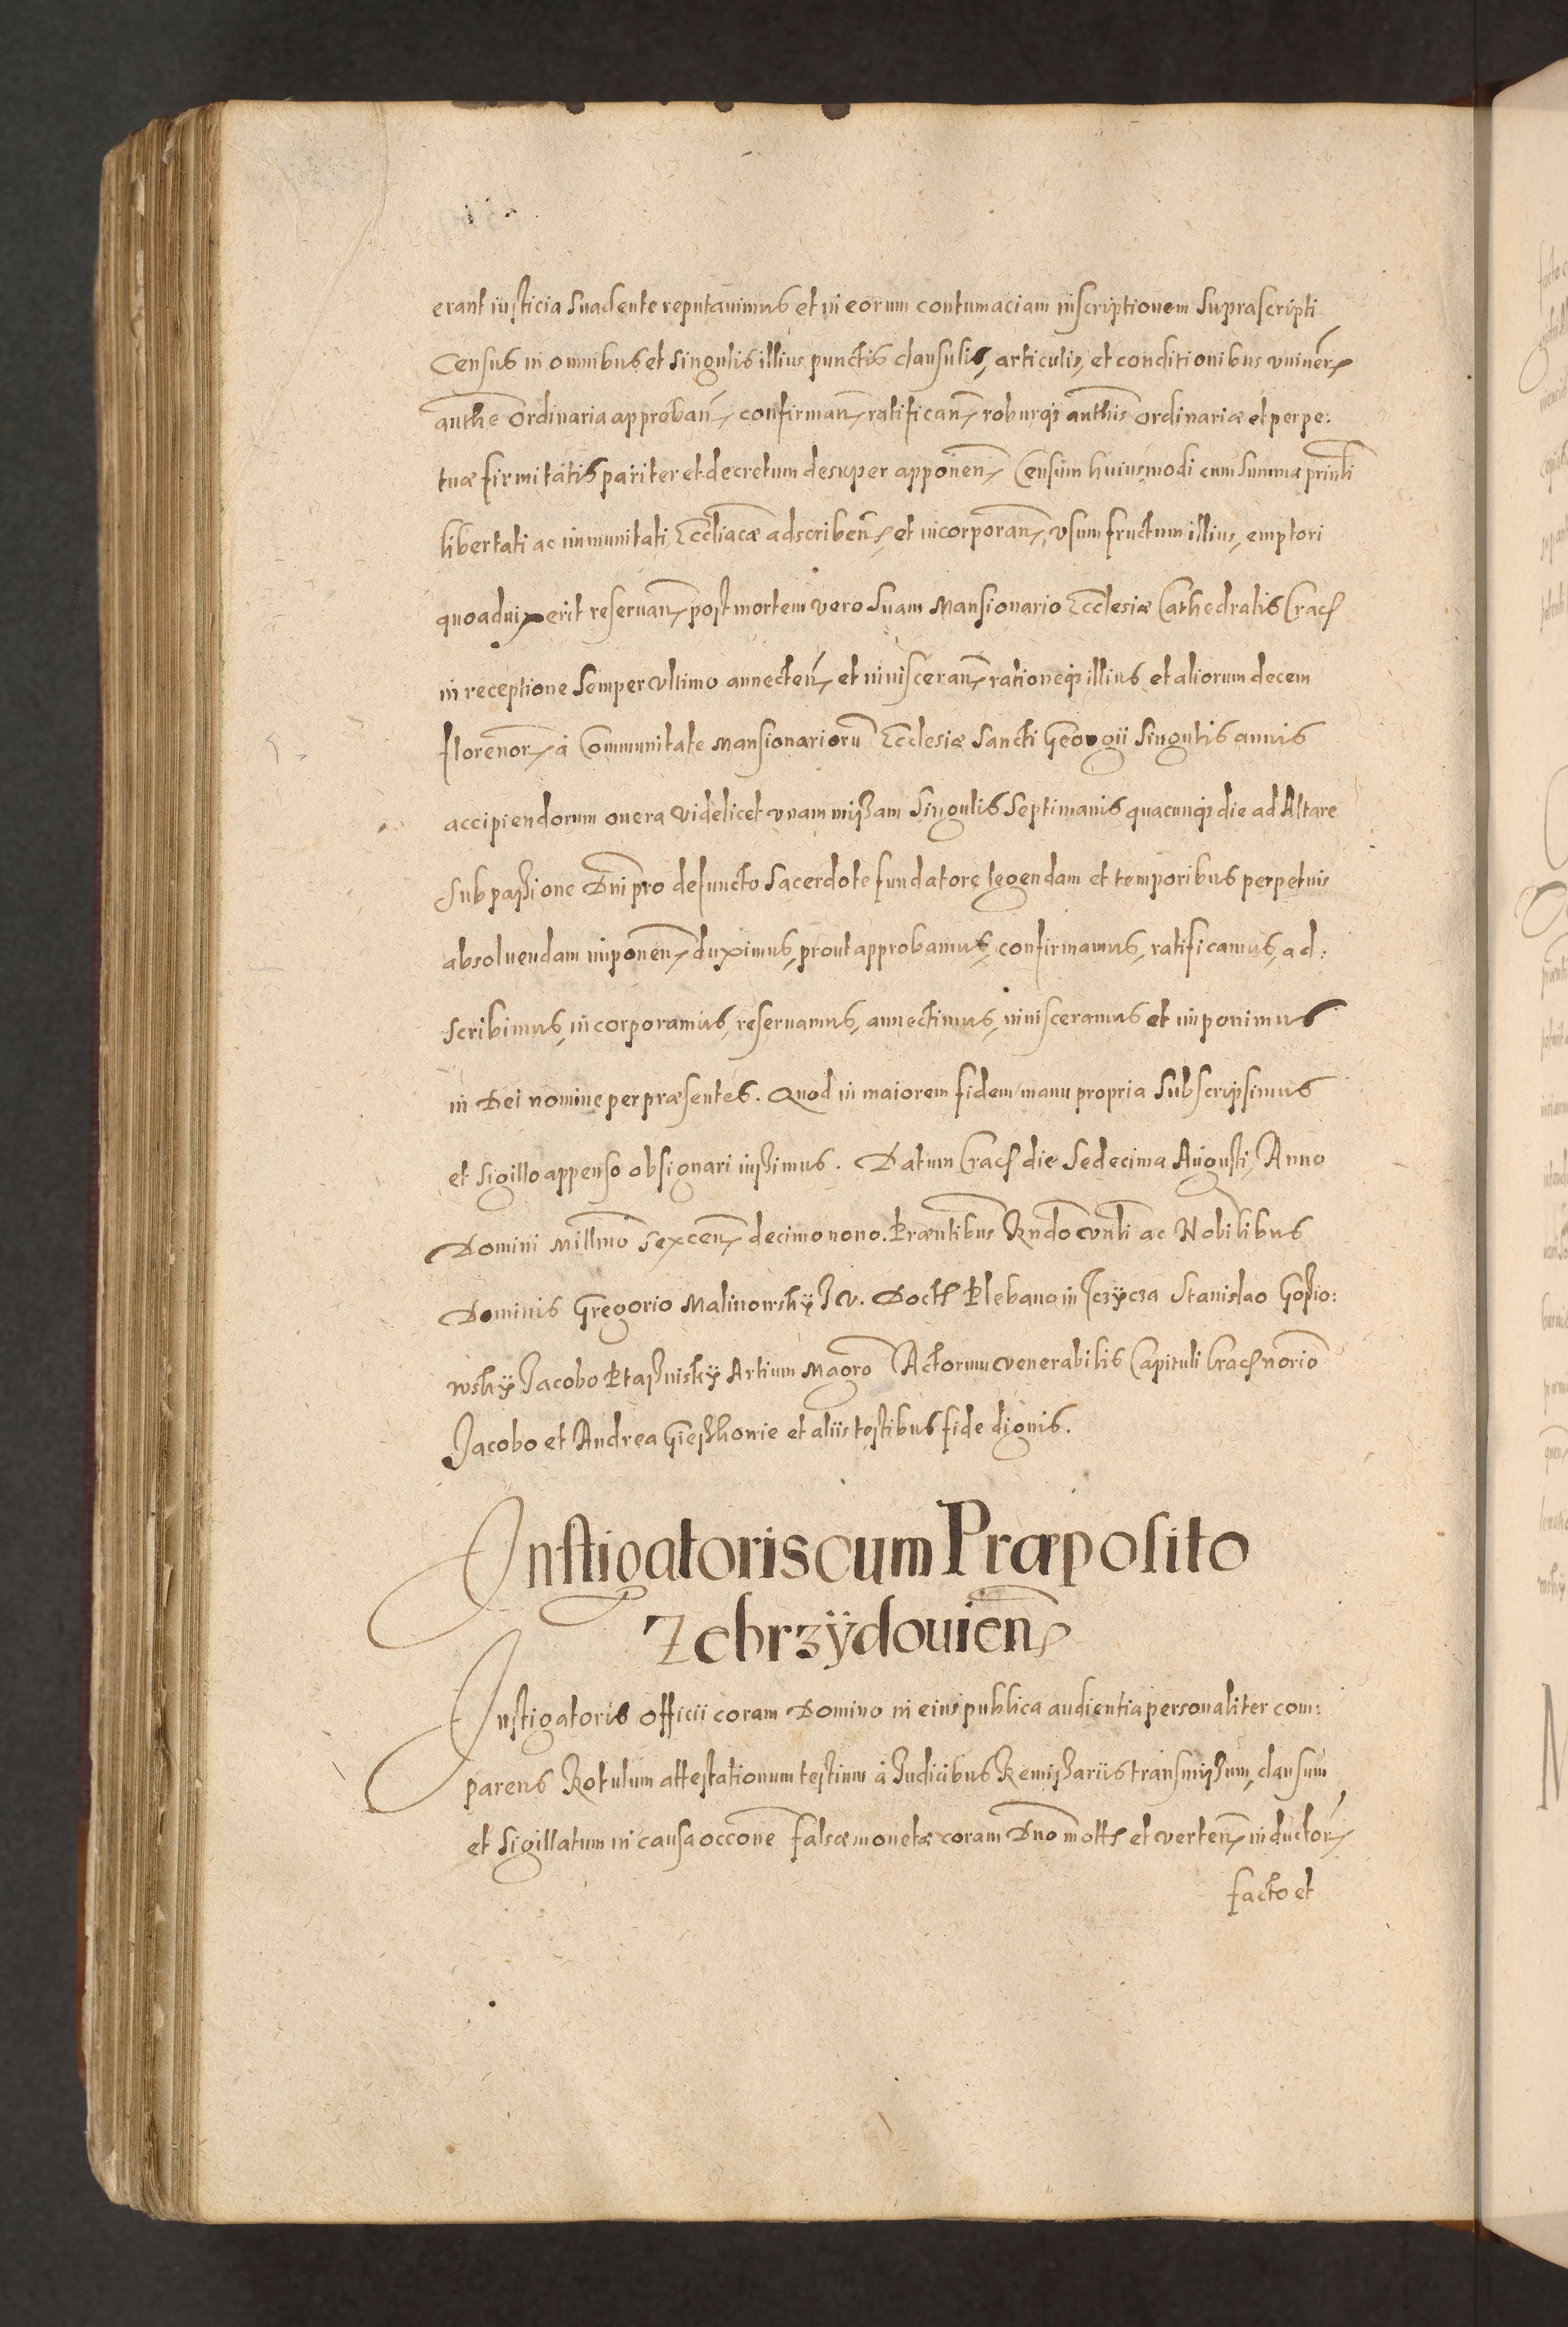 erant iusticia suadente reputauimus et in eorum contumaciam inscriptionem suprascripti
Census in omnibus et singulis illius punctis clausulis, articulis, et conditionibus
authe Ordinaria approban, confirman, ratifican, roburq; authis ordinariæ et perpe:
tuæ firmitatis pariter et decretum desuper apponen, Censum huiusmodi cum summa prinli
libertati ac immunitati Eccliacæ adscriben, et incorporan, vsum fructum illius, emptori
quoad vixerit reseruan, post mortem vero suam Mansionario Ecclesiæ Cathedralis Crac
in receptione semper vltimo annecten, et inuisceran, rationeq; illius et aliorum decem
florenor, à Communitate Mansionarioru Ecclesiæ Sancti Georgii singulis annis
accipiendorum onera videlicet vnam missam singulis septimanis quacunq; die ad Altare
sub passione Dni pro defuncto sacerdote fundatore legendam et temporibus perpetuis
absoluendam imponen, duximus, prout approbamus, confirmamus, ratificamus, ad:
scribimus, incorporamus, reseruamus, annectimus, inuisceramus et imponimus
in Dei nomine per præsentes. Quod in maiorem fidem manu propria subscripsimus
et sigillo appenso obsignari iussimus. Datum Crac die Sedecima Augusti, Anno
Domini Millmo Sexcen, decimo nono. Præntibus Rndo vnli ac Nobilibus
Dominis Gregorio Malinowsky J. V. Doct Plebano in Stanislao
wsky Jacobo Artium Magro Actorum venerabilis Capituli Crac norio
Jacobo et Andrea et aliis testibus fide dignis.
Instigatoris cum Præposito
Zebrzÿdouien
Instigatoris officii coram Domino in eius publica audientia personaliter com:
parens Rotulum attestationum testium à Judicibus Remissariis transmissum, clausum
et sigillatum in causa occone falsæ monetæ coram Dno mott et verten, inductor,
facto et